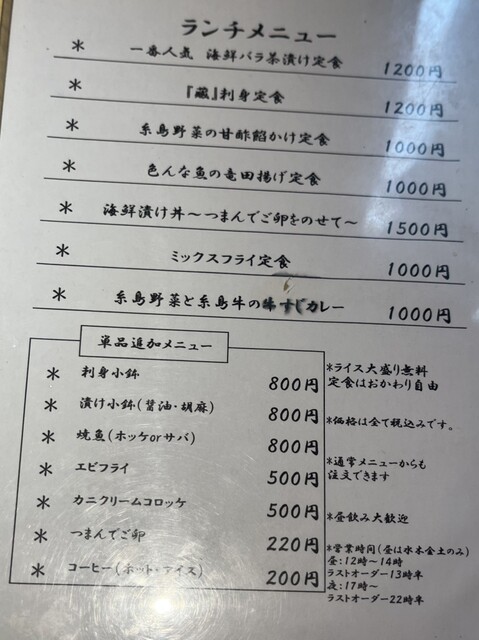 ランチメニュー
* 一番人気 海鮮バラ茶漬け定食 1200円
* 『蔵』刺身定食 1200円
* 糸島野菜の甘酢餡かけ定食 1000円
* 色んな魚の竜田揚げ定食 1000円
* 海鮮漬け丼～つまんでご卵をのせて～ 1500円
* ミックスフライ定食 1000円
* 糸島野菜と糸島牛の すじカレー 1000円
単品追加メニュー
* 刺身小鉢 800円
* 漬け小鉢(醤油・胡麻) 800円
* 焼魚(ホッケorサバ) 800円
* エビフライ 500円
* カニクリームコロッケ 500円
* つまんでご卵 220円
* コーヒー(ホット・アイス) 200円
*ライス大盛り無料
定食はおかわり自由
*価格は全て税込みです。
*通常メニューからも
注文できます
*昼飲み大歓迎
*営業時間(昼は水木金土のみ)
昼:12時～14時
ラストオーダー13時半
夜:17時～
ラストオーダー22時半